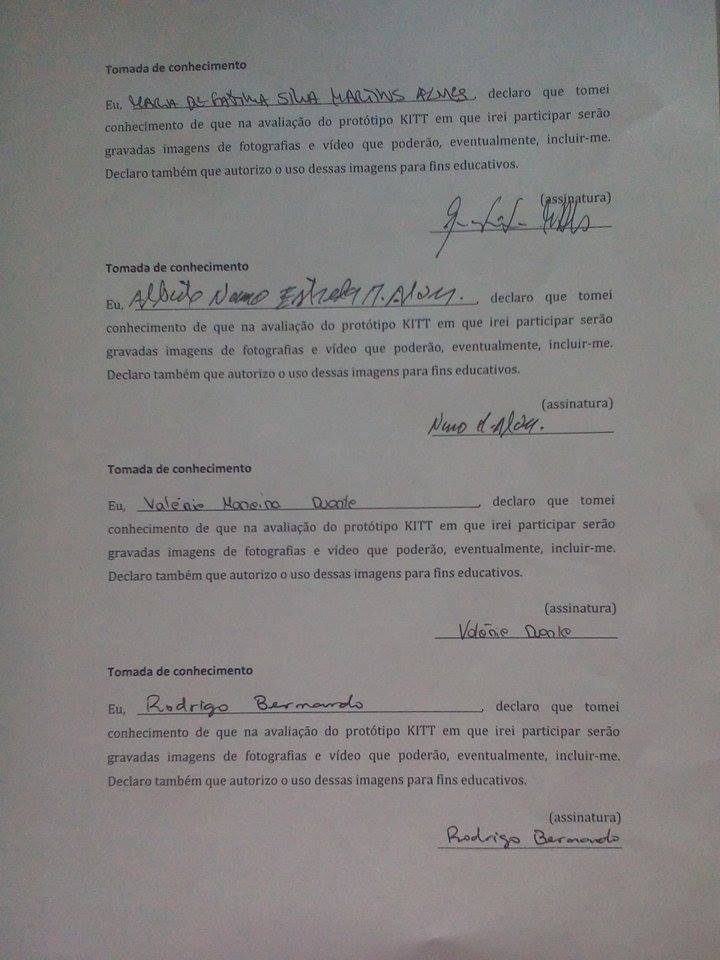 Tomada de conhecimento
Eu, MARIA DE FATIMA SILVA MARTINS ALVES, declaro que tomei
conhecimento de que na avaliação do protótipo KITT em que irei participar serão
gravadas imagens de fotografias e vídeo que poderão, eventualmente, incluir-me.
Declaro também que autorizo o uso dessas imagens para fins educativos.
(assinatura)
Tomada de conhecimento
Eu, Alberto Nuno Estrela M. Alves., declaro que tomei
conhecimento de que na avaliação do protótipo KITT em que irei participar serão
gravadas imagens de fotografias e vídeo que poderão, eventualmente, incluir-me.
Declaro também que autorizo o uso dessas imagens para fins educativos.
(assinatura)
Nuno
Tomada de conhecimento
Eu, Valérie Duarte, declaro que tomei
conhecimento de que na avaliação do protótipo KITT em que irei participar serão
gravadas imagens de fotografias e vídeo que poderão, eventualmente, incluir-me.
Declaro também que autorizo o uso dessas imagens para fins educativos.
(assinatura)
Valérie Duarte
Tomada de conhecimento
Eu, Rodrigo Bernardo, declaro que tomei
conhecimento de que na avaliação do protótipo KITT em que irei participar serão
gravadas imagens de fotografias e vídeo que poderão, eventualmente, incluir-me.
Declaro também que autorizo o uso dessas imagens para fins educativos.
(assinatura)
Rodrigo Bernardo